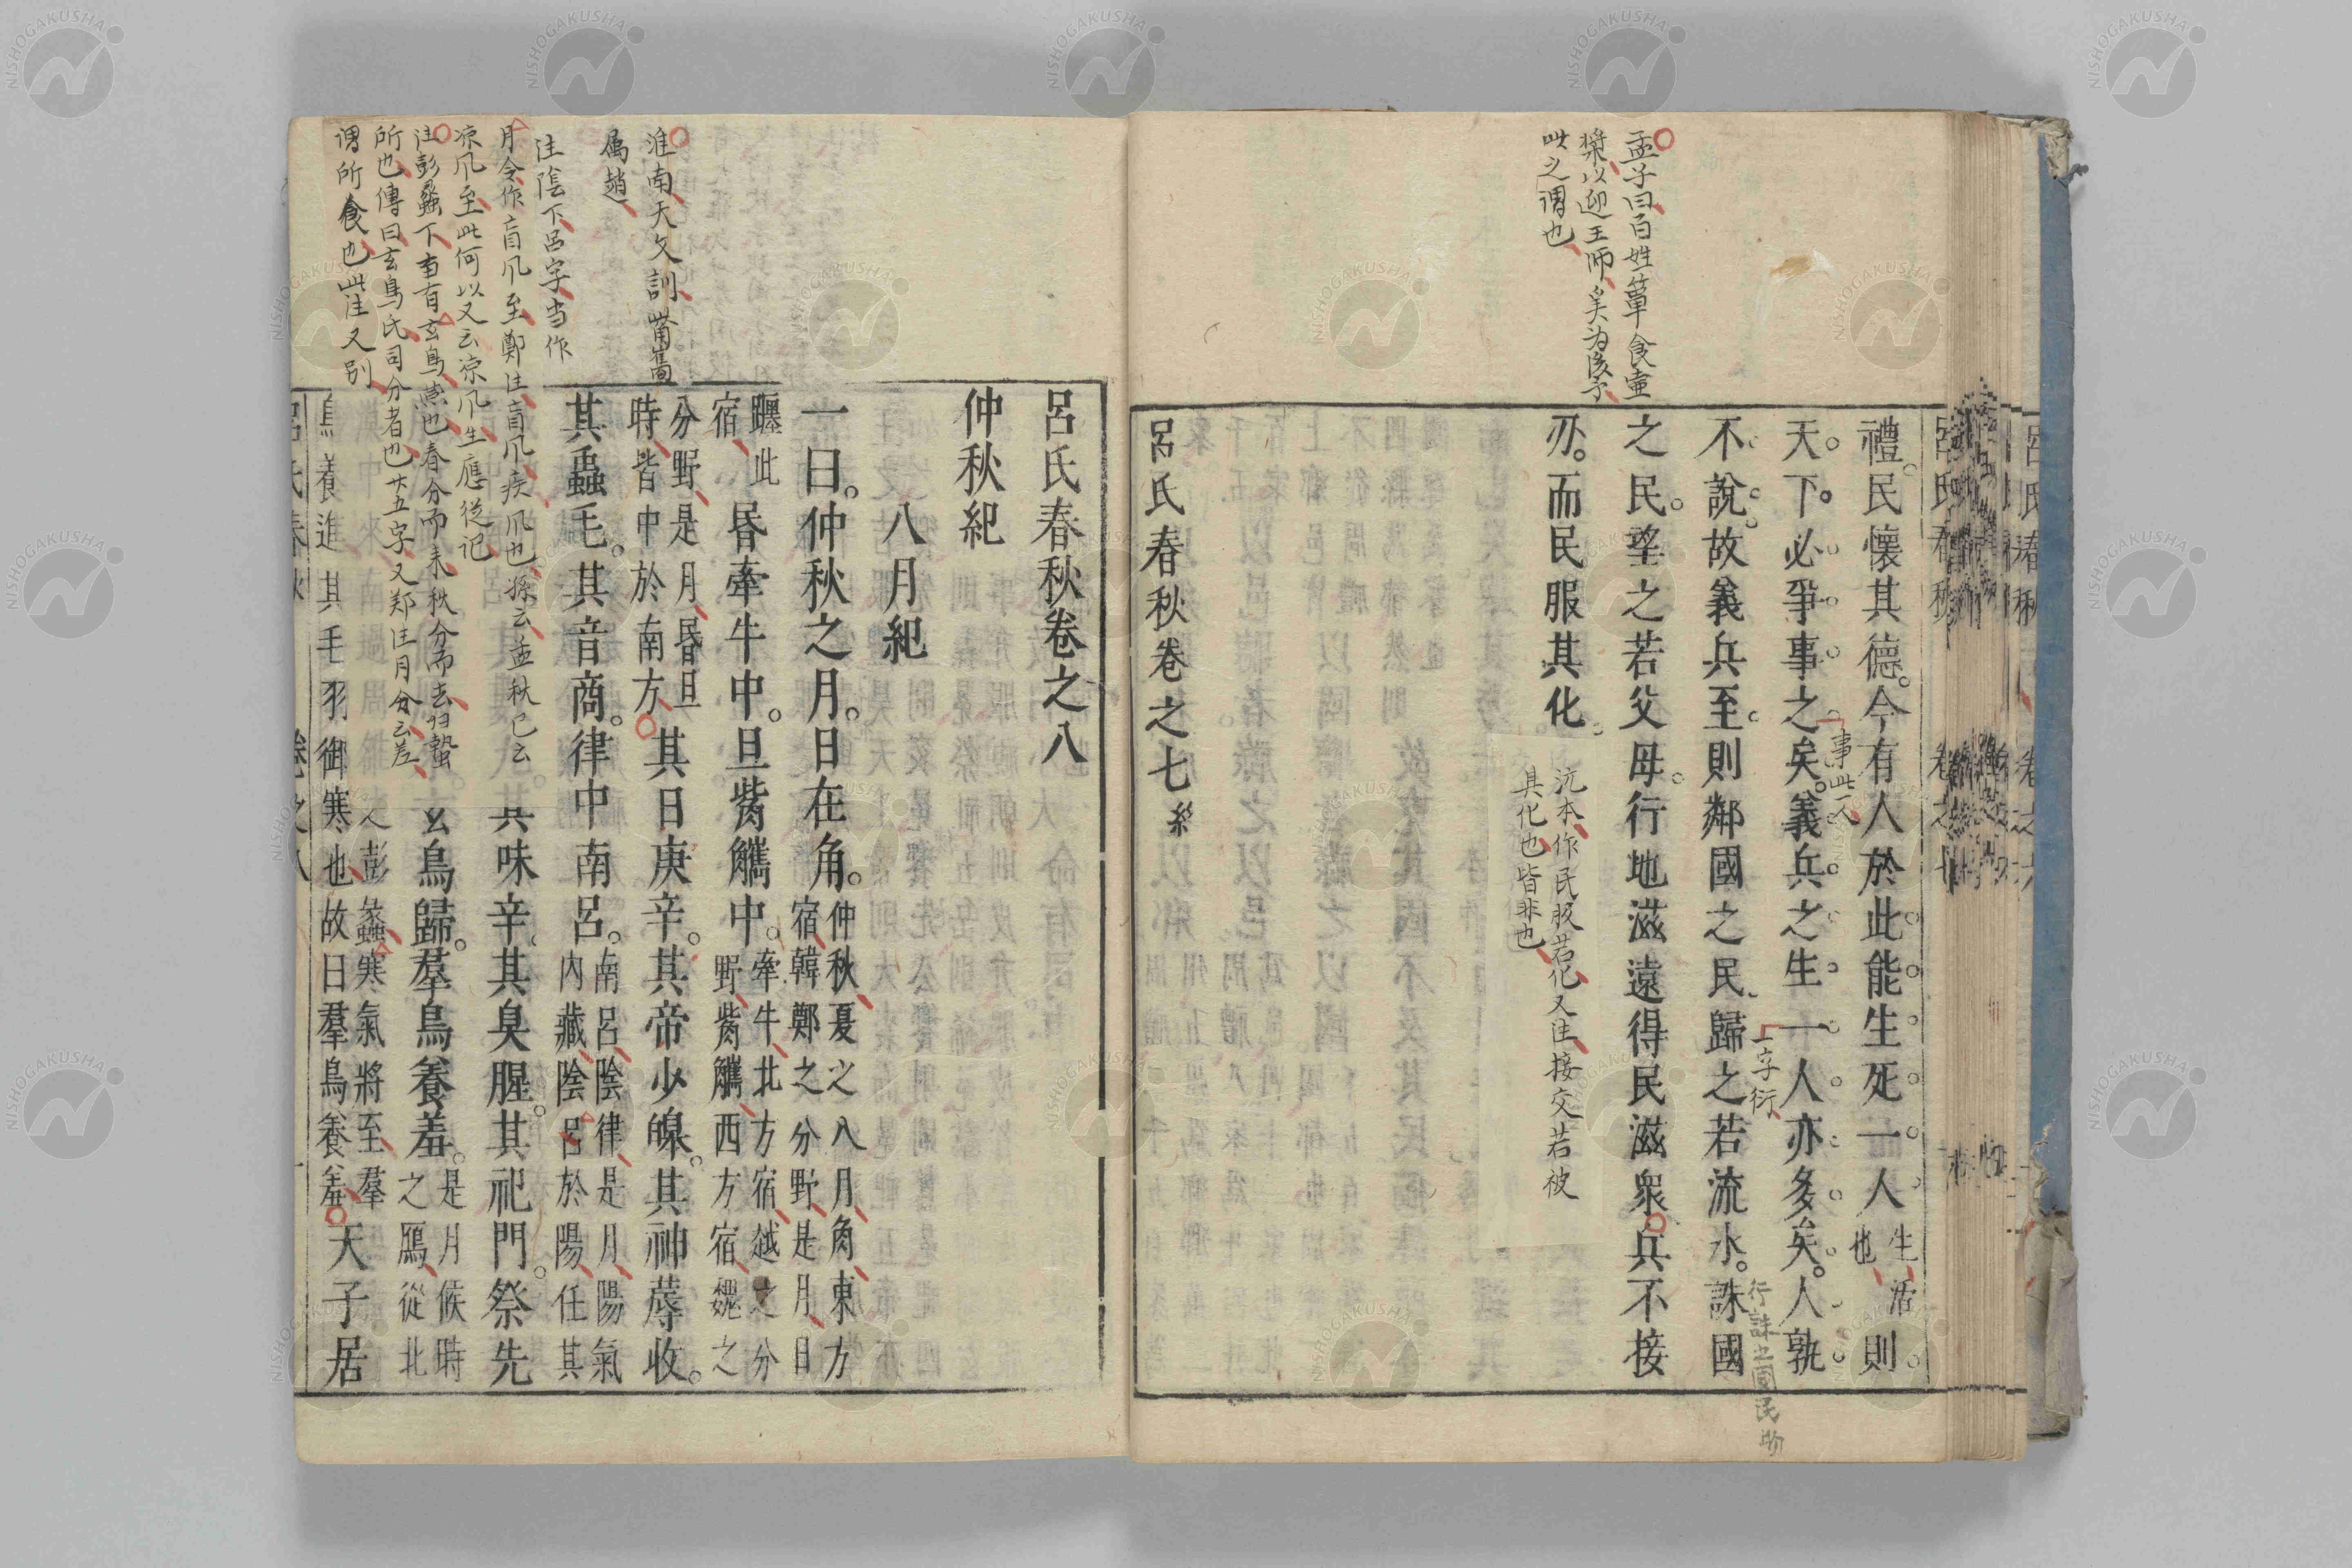 孟子曰百姓簞食壺
漿以迎王師奚为後予
此之謂也
禮民懷其德今有人於此能生死一人
生活
也
則
天下必爭事之矣義兵之生一人亦多矣人孰
事此人
不說故義兵至則鄰國之民歸之若流水誅國
一字衍
行誅之國民
之民望之若父母行地滋遠得民滋衆兵不接
刃而民服其化
元本作民服若化又注接交若被
其化也皆非也
呂氏春秋卷之七終
淮南天文訓觜觿
属趙
注陰下呂字当作
月令作盲风至鄭注盲风疾风也孫云孟秋已云
凉风至此何以又云凉风生應従记
注彭蠡下有玄鳥燕也春分而来秋分而去归蟄
所也傳曰玄鳥氏司分者也廿五字又郑注月
謂所食也此注又别
呂氏春秋卷之八
仲秋紀
八月紀
一曰仲秋之月日在角
仲秋夏之八月角東方
宿韓鄭之分野是月日
躔此
宿
昏牽牛中旦觜觿中
牽牛北方宿越之分
野觜觿西方宿魏之
分野是月昏旦
時皆中於南方
其日庚辛其帝少皞其神蓐收
其蟲毛其音商律中南呂
南呂陰律是月陽氣
內藏陰呂於陽任其
其味辛其臭腥其祀門祭先
玄鳥歸羣鳥養羞
是月候時
之鴈從北
彭蠡寒氣將至羣
鳥養進其毛羽御寒也故曰羣鳥養羞
天子居
呂氏春秋 卷之八